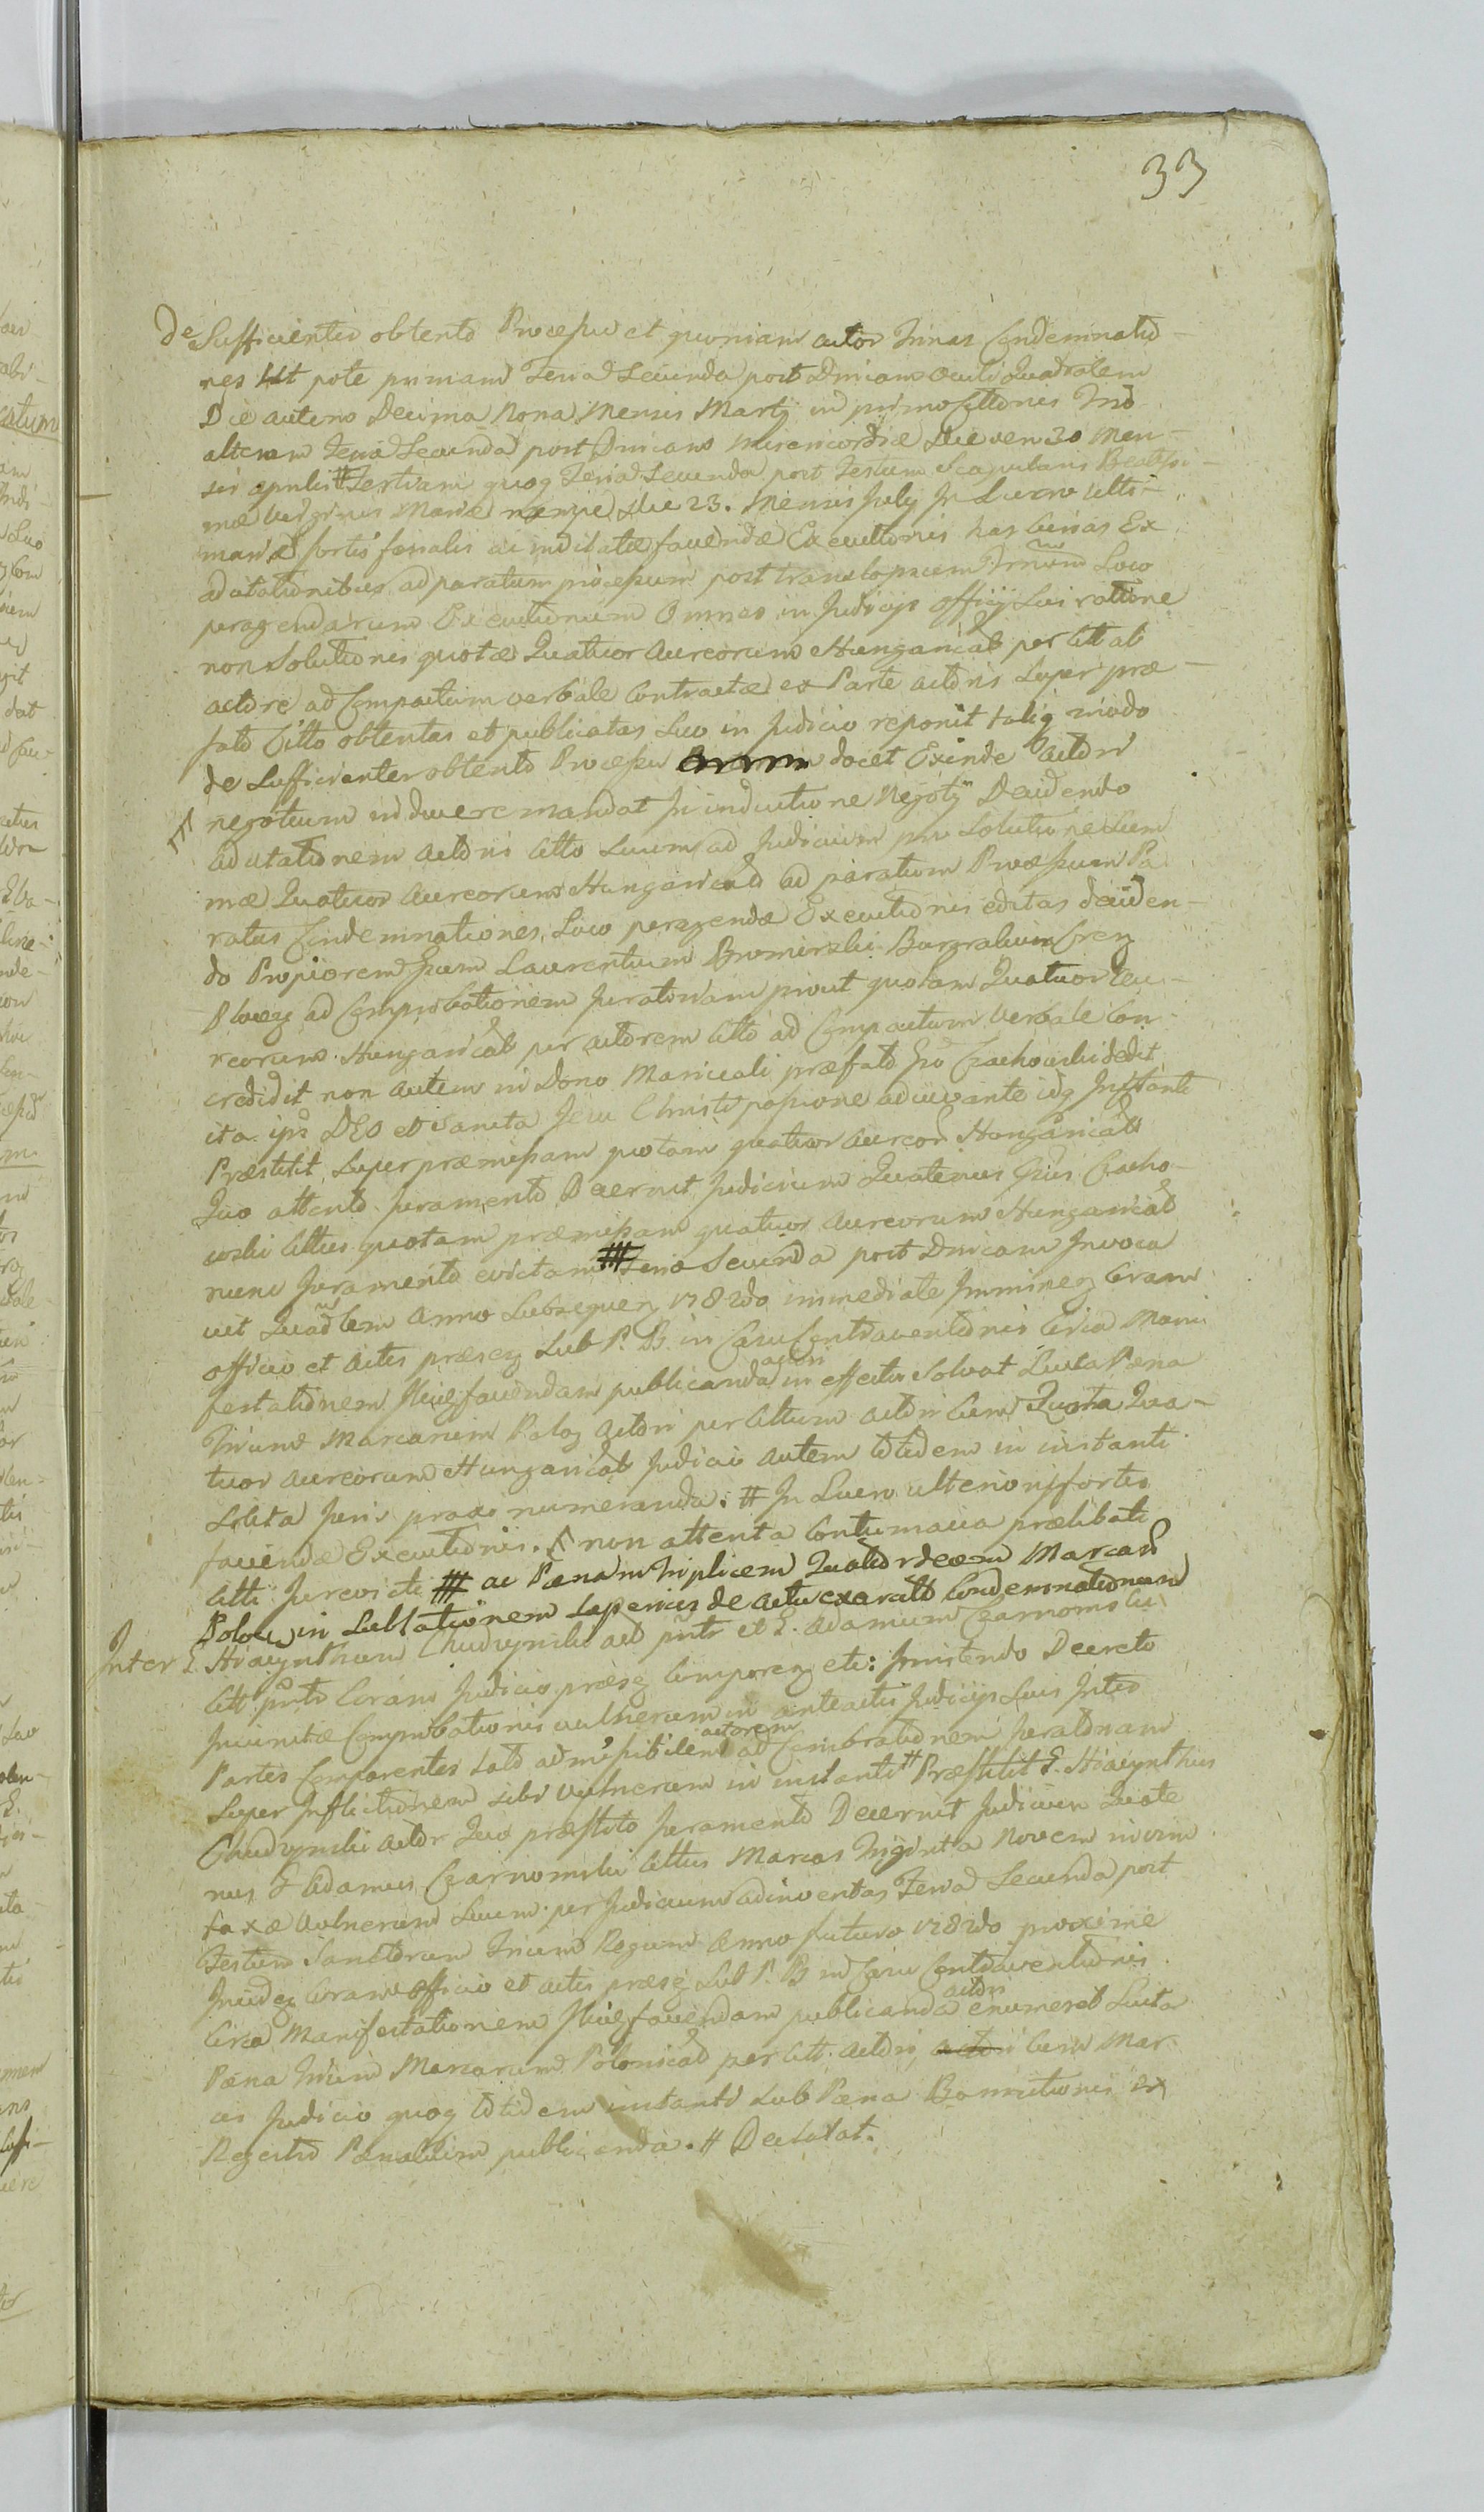 33
de Sufficienter obtento Processu et quoniam actor Trinas Condemnatio-
nes Ut pote primam Feria Secunda post Dnicam Oculi Quadralem
Die autem Decima Nona Mensis Martij in primo Cittonis Trno
alteram Feria Secunda post Dnicam Misericordiæ Die vero 30 Men-
sis Aprilis # Tertiam quoq Feria Secunda post Festum Scapularis Beatissi-
mæ Virginis Mariæ nempe die 23. Mensis July In Lucro Ulti-
mariæ fortis foralis ac inditatæ faciendæ Executionis has Ex
adcitationibus ad paratum processum post translapsum Trnum Loco
peragendarum Executionum Omnes in Judicijs Officij Sui ratione
non Solutionis quotæ Quatuor Aureorum Hungarical per Citt ab
actore ad Compactum verbale Contractæ ex Parte actoris Super præ-
fato Citto obtentas et publicatas Suo in Judicio reponit taliq modo
de Sufficienter obtento Processu docet Exinde Actori
negotium inducere mandat In inductione Negotij Decidendo
adcitationem Actoris Citto Suum ad Judicium pro Solutione Sum
mæ Quatuor Aureorum Hungarical ad paratum Processum Pa
ratas Condemnationes, Loco peragendæ Executionis editas deciden-
do Propiorem Laurentium Bromirski Burgrabium Creg
Plocen ad Comprobationem Juratoriam prout quotam Quatuor Au-
reorum Hungarical per actorem Citto ad Compactum Verbale Con-
credidit non autem in Dono Maricali præfato Czachowski dedit
ita ips DEO et Sancta Jesu Christi passione adiuvante idq Instanti
Præstitit Super præmissam quotam quatuor Aureor Hungarical
Quo attento Juramento Decernit Judicium Quatenus Czacho-
wski Cittus quotam præmissam quatuor Aureorum Hungarical
nunc Juramento evictam Feria Secunda post Dnicam Invoca
vit Quadlem Anno Subsequen 1782do immediate Imminen Coram
officio et Actis præsen Sub P. B. in Casu Contraventionis Circa Mani
festationem faciendam publicanda actori in effectu Solvat Luita Pæna
Trium Marcarum Polon Actori per Cittum actori Cum Quota Qua-
tuor Aureorum Hungarical Judicio autem totidem in instanti
Solita Juris praxi numeranda. # In Lucro ulterioris fortis
faciendæ Executionis. non attenta Contumacia prælibati
Citti Jurevicti ac Pænam triplicem Quatordecem Marcar
Polon in Sublationem Sapeius de actu exarati Condemnationum
Inter E. Hiacynthum Chudzynski act pnte et E. Adamum Czarnomski
Citt pnte Coram Judicio præsen Comparen etc: Insistendo Decreto
Iniunctæ Comprobationis vulnerum in anteactis Judicijs Suis Inter
Partes Comparentes Lato admissibilem actorem ad Comprobationem Juratoriam
Super Inflictionem sibi vulnerum in instanti # Præstitit E. Hiacynthus
Chudzynski actor Quo præstito Juramento Decernit Judicium Quate
nus E Adamus Czarnomski Cittus Marcas Triginta Novem in vim
taxæ Vulnerum Suum per Judicium adinventas Feria Secunda post
Festum Sanctorum Trium Regum Anno futuro 1782do proxime
Inciden Coram Officio et actis præsen Sub P. B in Casu Contraventionis
Circa Manifestationem faciendam publicanda actori enumeret Luita
Pæna Trium Marcarum Polonical per Citt actori, actori Cum Mar
cis Judicio quoq totidem instanti Sub Pæna Bannitionis ex
Regestro Pænalium publicanda. # Declarat.